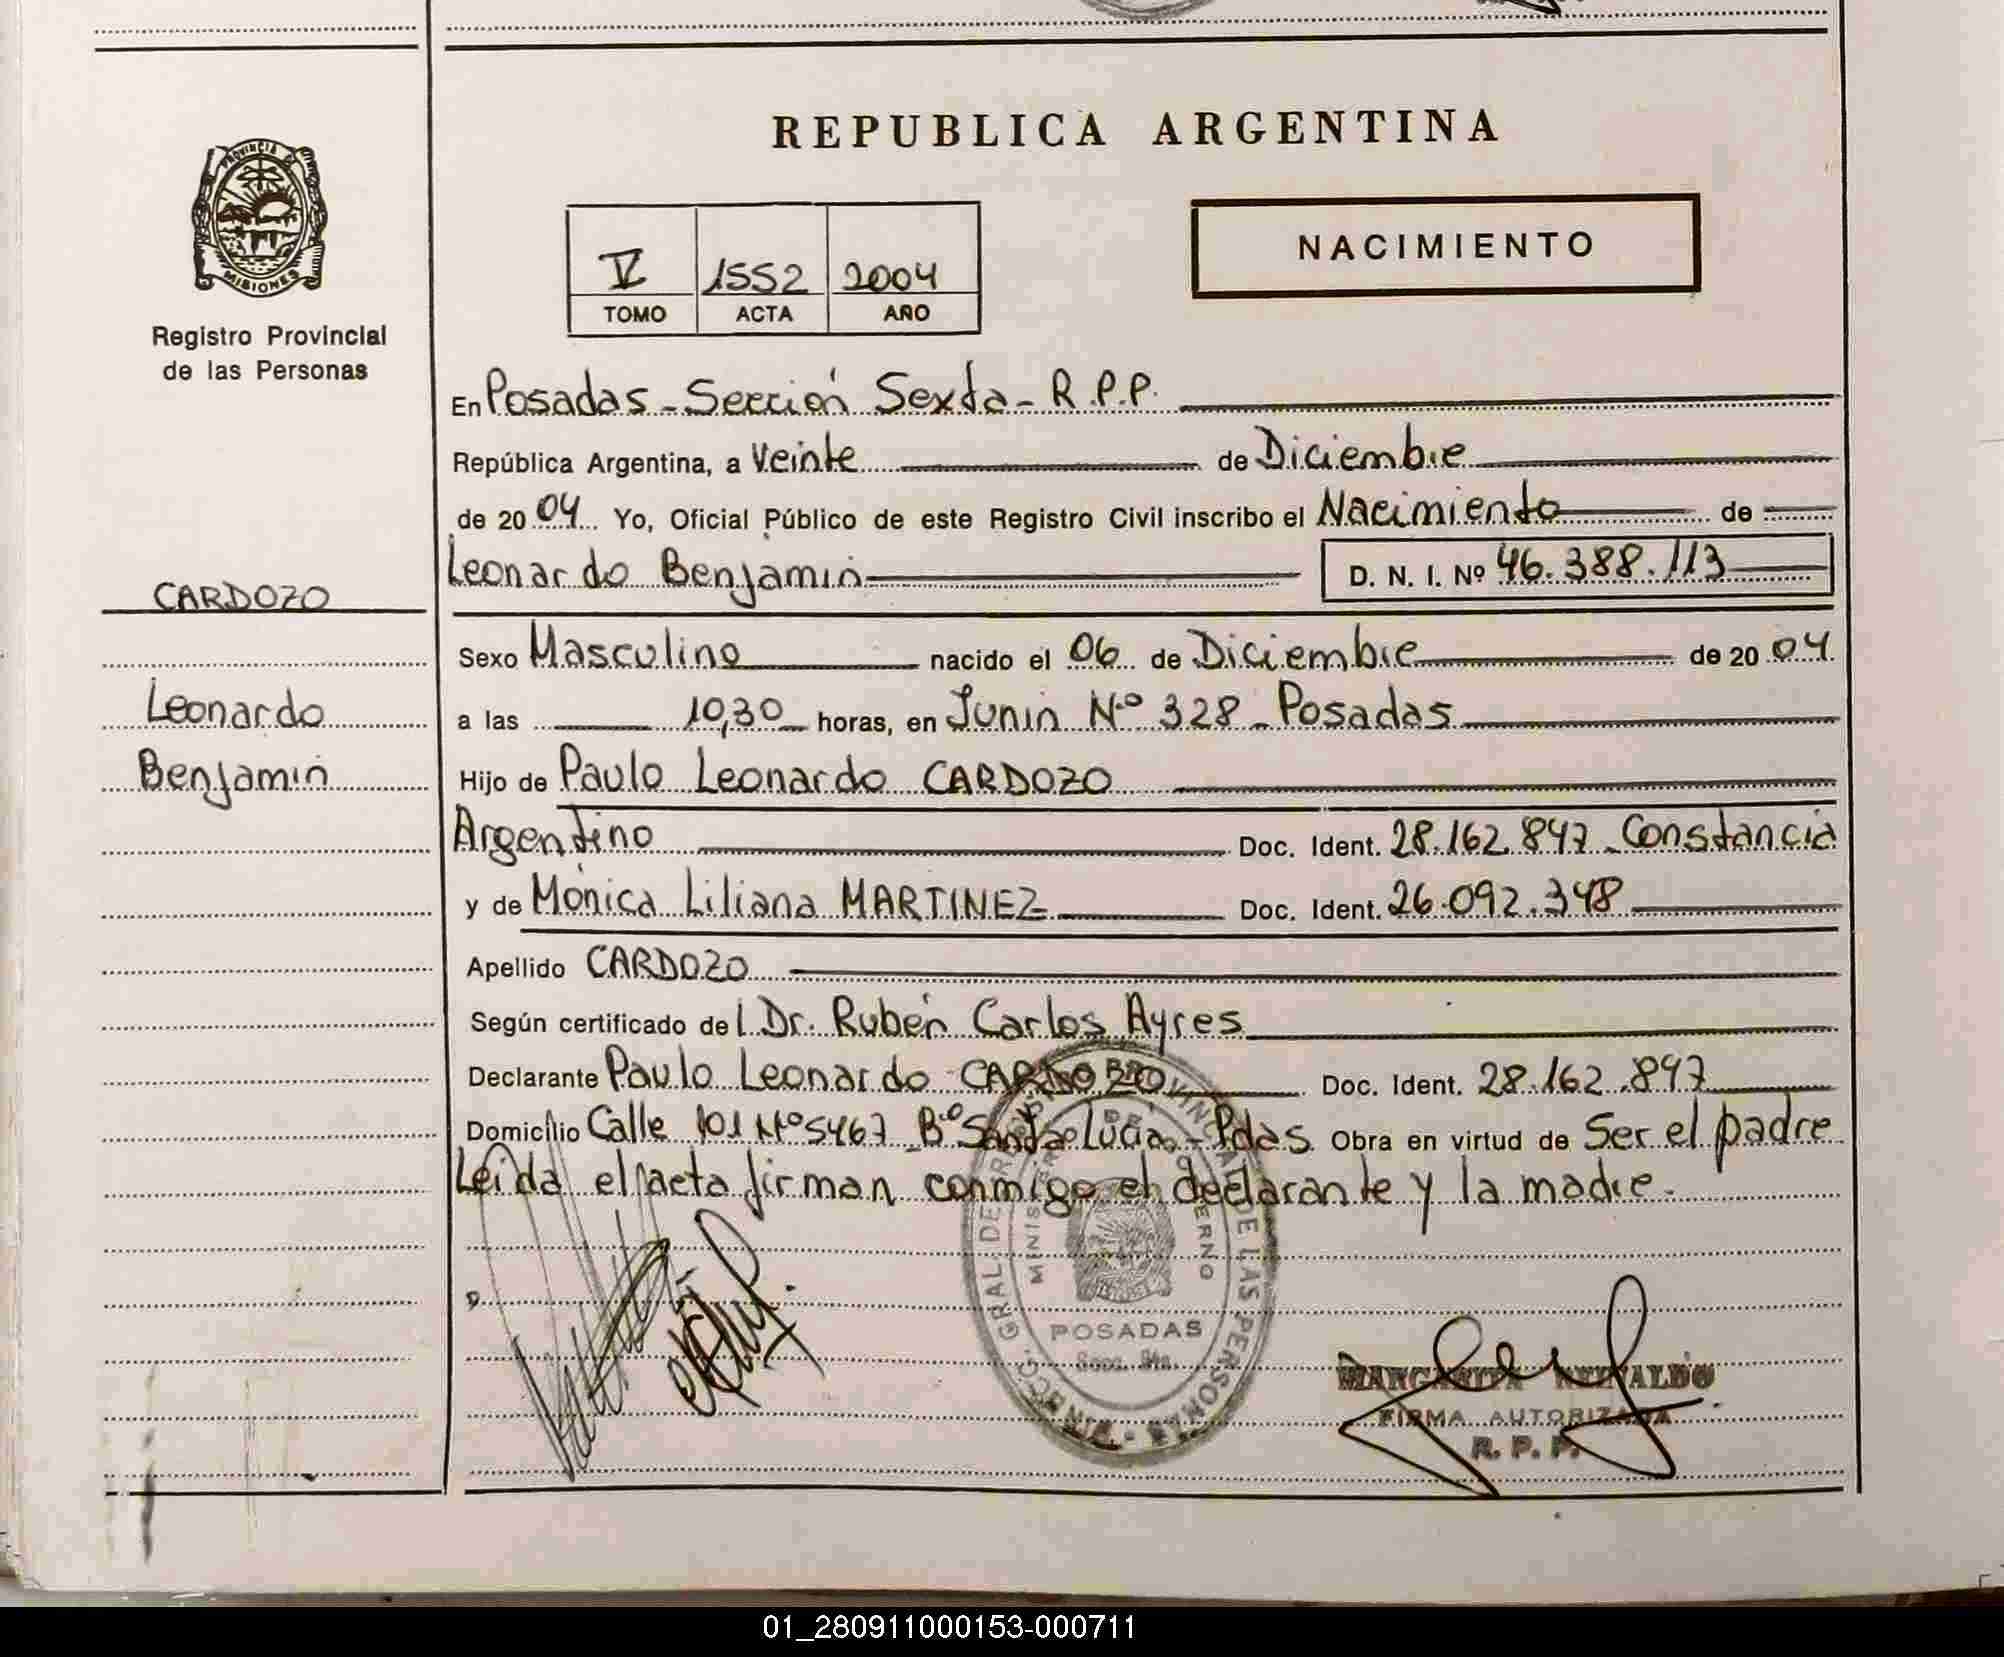 REPUBLICA ARGENTINA
PROVINCIA DE MISIONES
Registro Provincial
de las Personas
V 1552 2004
TOMO ACTA AÑO
NACIMIENTO
En Posadas - Sección Sexta - R.P.P.
República Argentina, a Veinte de Diciembre
de 2004 Yo, Oficial Público de este Registro Civil inscribo el Nacimiento de
Leonardo Benjamin D. N. I. Nº 46.388.113
CARDOZO
Leonardo
Benjamin
Sexo Masculino nacido el 06 de Diciembre de 2004
a las 10,30 horas, en Junin Nº 328 - Posadas
Hijo de Paulo Leonardo CARDOZO
Argentino Doc. Ident. 28.162.847 - Constancia
y de Mónica Liliana MARTINEZ Doc. Ident. 26.092.348
Apellido CARDOZO
Según certificado del Dr. Rubén Carlos Ayres
Declarante Paulo Leonardo CARDOZO Doc. Ident. 28.162.847
Domicilio Calle 101 Nº 5467 - Bº Santa Lucia - Pdas Obra en virtud de Ser el padre
Leida el acta firman conmigo el declarante y la madre.
MINISTERIO DE GOBIERNO
POSADAS
Secc. 6ta.
MARGARITA REINALDO
FIRMA AUTORIZADA
R. P. P.
01_280911000153-000711